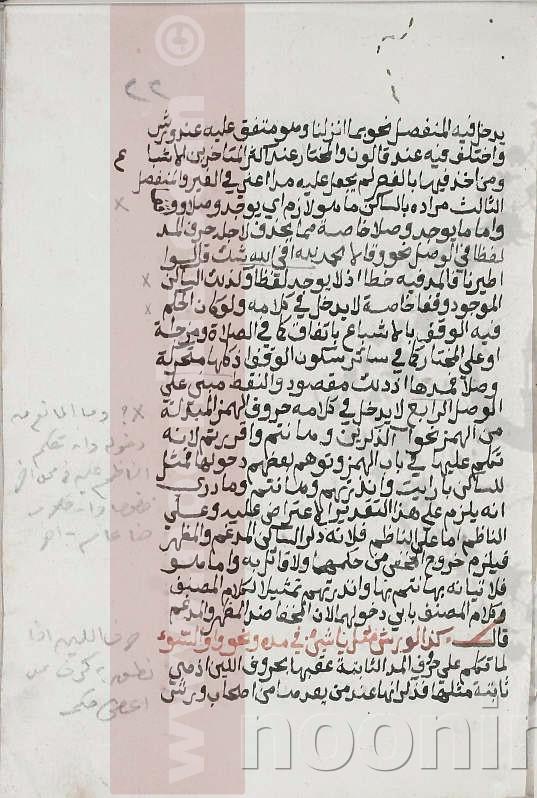 يدخل فيه المنفصل نحو بما انزلنا وهو متفق عليه عند ورش
واختلف فيه عند قالون والمختار عند اكثر المتاخرين الاشباع
ومن اخذ فيها بالقصر لم يجعل عليه مدا اعني في الضمير والمنفصل
الثالث مراده بالساكن ما هو لازم اي يوجد وصلا ووقفا
واما ما يوجد وصلا خاصة مما يحذف لاجله حرف المد
لفظا في الوصل نحو وقالا الحمد لله افي الله شك قالوا
اطيرنا فالمد فيه خطأ اذ لا يوجد لفظا وكذلك الساكن
الموجود وقفا خاصة لا يدخل في كلامه ولو كان الحكم
فيه الوقف بالاشباع باتفاق كما في الصلاة ومزجية
او على المختار كما في سائر سكون الوقف اذ كلها متحركة
وصلا قصدها اذ ذلك مقصود والنقط مبني على
الوصل الرابع لا يدخل في كلامه حروف الهمز المبدلة
من الهمز نحو الذكرين وهانتم واقررتم لانه
تكلم عليها في باب الهمز وتوهم بعضهم دخولها فمثل
للساكن بارايت وانذرتهم وهانتم وما درى
انه يلزم على هذا التقدير الاعتراض عليه وعلى
الناظم اما على الناظم فلانه ذكر الساكن المدغم والمظهر
فيلزم خروج المخفى من حكمهما ولا قائل به واما هو
فلاتيانه بهانتم بها وانذرتهم تمثيلا لكلام المصنف
وكلام المصنف يابى دخولها لان المخفا ضد المظهر والمدغم
قال كذا لورش مثل ياء شيء في مده ونحو واو السوء
لما تكلم على حرف المد الثابتة عقبها بحروف اللين اذ هي
ثابتة مثلها فذكر انها عند من يمدها من اصحاب ورش
٢٢
وما المانع من
دخوله وانه تكلم
حرف اللين اذا